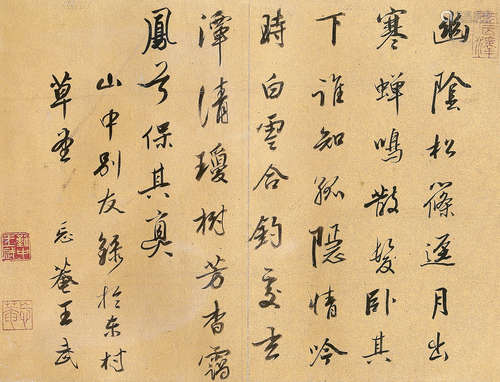 幽陰松篠逕月出
寒蟬鳴散髮卧其
下誰知孤隱情吟
時白雲合釣處玄
潭清瓊樹芳杳靄
鳳兮保其真
山中別友錄於東村
草堂
忘菴王武